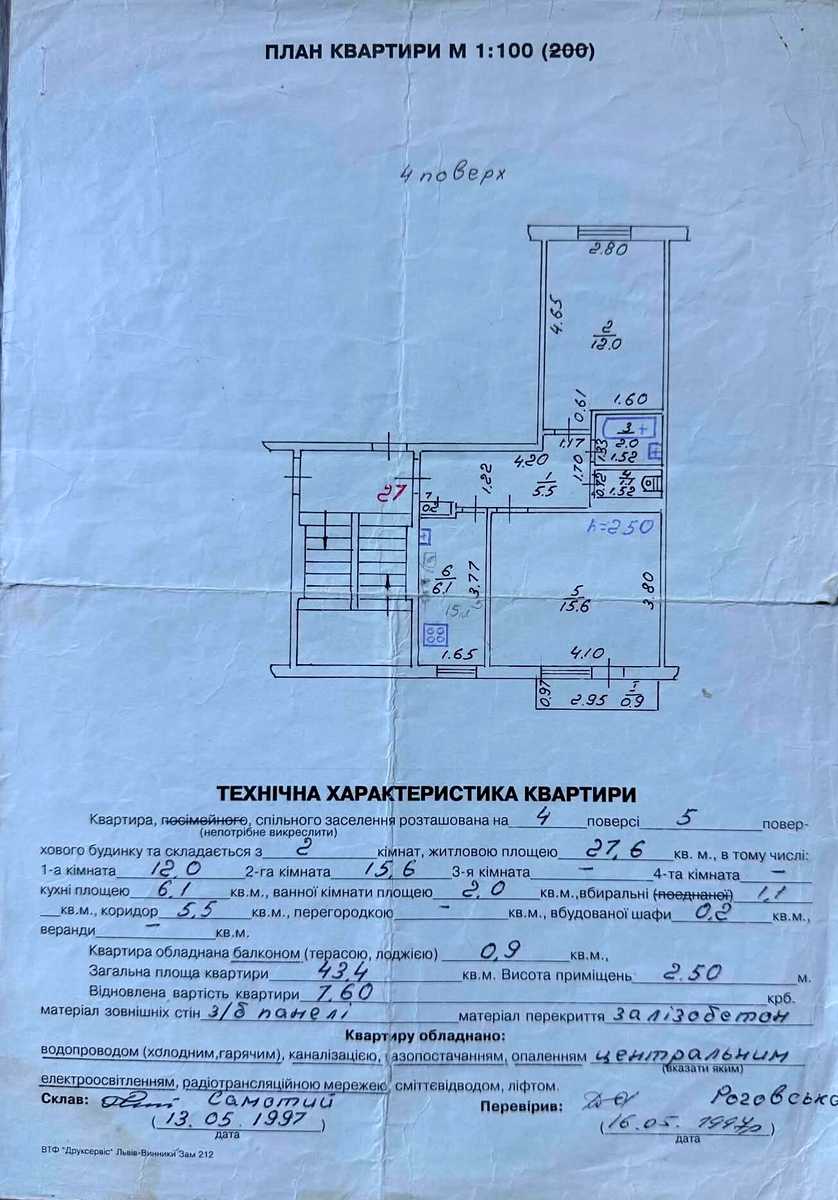 ПЛАН КВАРТИРИ М 1:100 (200)
4 поверх
2.80
4.65
2
12.0
0.61
1.60
3
2.0
1.33
1.52
1.17
4.20
1.70
1.22
1
5.5
4
1.1
0.72
1.52
27
7
0.2
h=2.50
6
6.1
3.77
5
15.6
3.80
1.65
4.10
0.97
2.95
I
0.9
ТЕХНІЧНА ХАРАКТЕРИСТИКА КВАРТИРИ
Квартира, посімейного, спільного заселення розташована на 4 поверсі 5 повер-
(непотрібне викреслити)
хового будинку та складається з 2 кімнат, житловою площею 27,6 кв. м., в тому числі:
1-а кімната 12.0 2-га кімната 15,6 3-я кімната – 4-та кімната –
кухні площею 6,1 кв.м., ванної кімнати площею 2,0 кв.м.,вбиральні (поєднаної) 1,1
кв.м., коридор 5,5 кв.м., перегородкою – кв.м., вбудованої шафи 0,2 кв.м.,
веранди – кв.м.
Квартира обладнана балконом (терасою, лоджією) 0,9 кв.м.,
Загальна площа квартири 43,4 кв.м. Висота приміщень 2.50 м.
Відновлена вартість квартири 7,60 крб.
матеріал зовнішніх стін з/б панелі матеріал перекриття залізобетон
Квартиру обладнано:
водопроводом (холодним,гарячим), каналізацією, газопостачанням, опаленням центральним
(вказати яким)
електроосвітленням, радіотрансляційною мережею, сміттєвідводом, ліфтом.
Склав: Самотий Перевірив: Роговська
(13.05.1997) (16.05.1997р)
дата дата
ВТФ "Друксервіс" Львів-Винники Зам 212